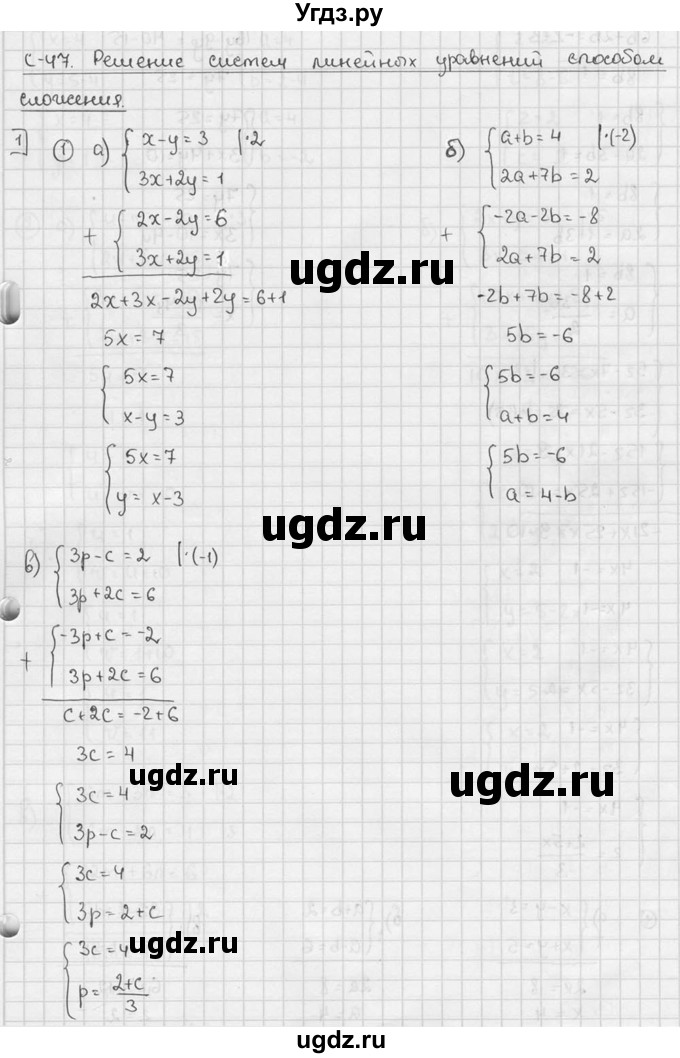 Угдз.ру
С-47. Решение систем линейных уравнений способом
сложения.
1 ① а) { x-y=3 |·2
3x+2y=1
+ { 2x-2y=6
3x+2y=1
2x+3x-2y+2y=6+1
5x=7
{ 5x=7
x-y=3
{ 5x=7
y= x-3
б) { a+b=4 |·(-2)
2a+7b=2
+ { -2a-2b=-8
2a+7b=2
-2b+7b=-8+2
5b=-6
{ 5b=-6
a+b=4
{ 5b=-6
a=4-b
ugdz.ru
ugdz.ru
в) { 3p-c=2 |·(-1)
3p+2c=6
+ { -3p+c=-2
3p+2c=6
c+2c=-2+6
3c=4
{ 3c=4
3p-c=2
{ 3c=4
3p=2+c
{ 3c=4
p= 2+c/3
ugdz.ru
ugdz.ru
ugdz.ru
Угдз.ру